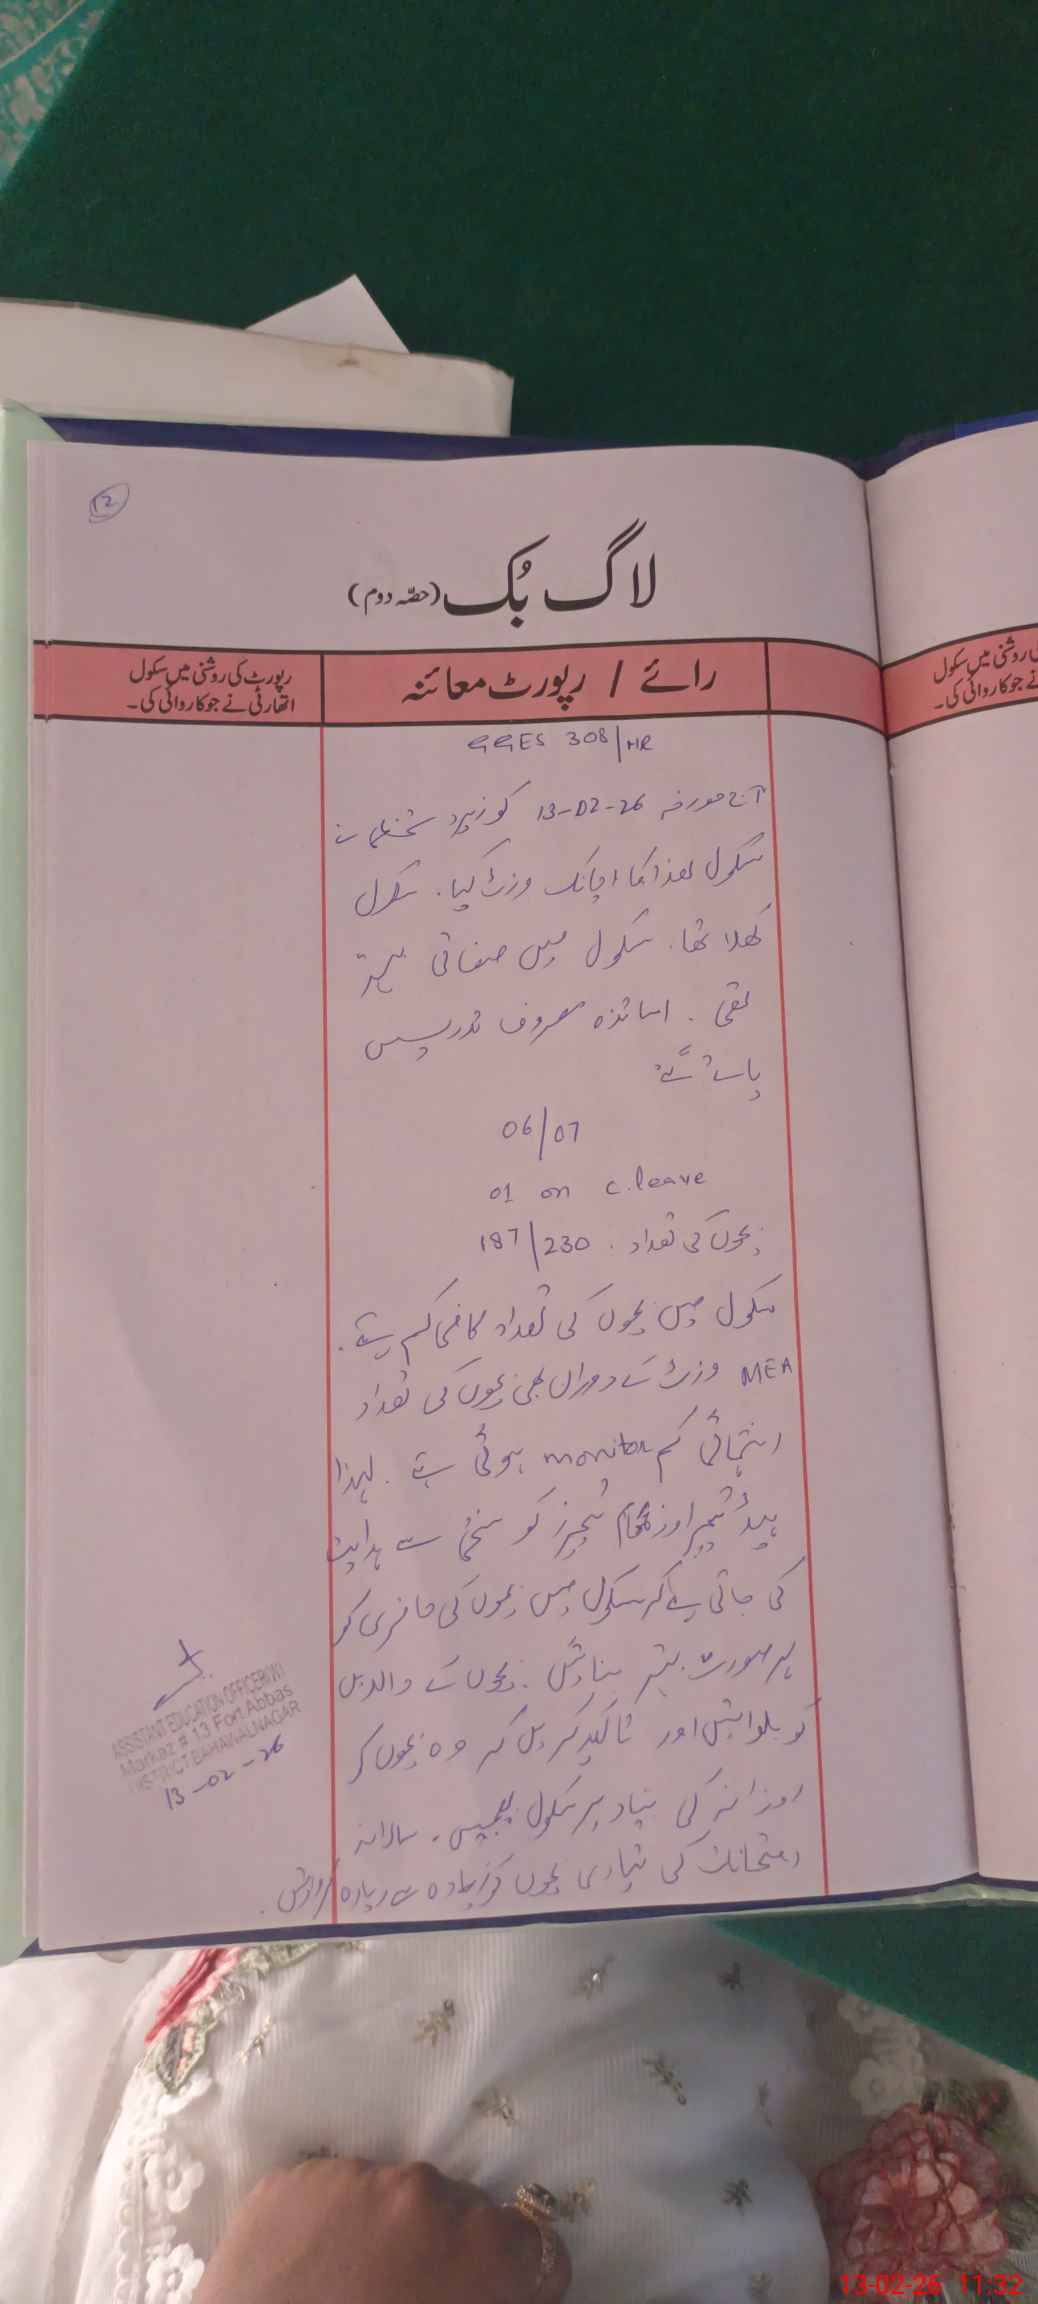 12
لاگ بُک (حصّہ دوم)
رائے / رپورٹ معائنہ
رپورٹ کی روشنی میں سکول
اتھارٹی نے جو کاروائی کی۔
ی روشنی میں سکول
نے جو کاروائی کی۔
GGES 308/HR
آج مورخہ 13-02-26 کو زیر دستخطی نے
سکول ھذا کا اچانک وزٹ کیا۔ سکول
کھلا تھا۔ سکول میں صفائی بہتر
تھی۔ اساتذہ مصروف تدریس
پائے گئے
06/07
01 on c.leave
بچوں کی تعداد۔ 187/230
سکول میں بچوں کی تعداد کافی کم ہے۔
MEA وزٹ کے دوران بھی بچوں کی تعداد
انتہائی کم monitor ہوئی ہے۔ لہذا
ہیڈ ٹیچر اور تمام ٹیچرز کو سختی سے ہدایت
کی جاتی ہے کہ سکول میں بچوں کی حاضری کو
ہر صورت بہتر بنائیں۔ بچوں کے والدین
کو بلوائیں اور تاکید کریں کہ وہ بچوں کو
روزانہ کی بنیاد پر سکول بھیجیں۔ سالانہ
امتحانات کی تیاری بچوں کو زیادہ سے زیادہ کروائیں۔
ASSISTANT EDUCATION OFFICER(W)
Markaz # 13 Fort Abbas
DISTRICT BAHAWALNAGAR
13-02-26
13-02-26 11:32